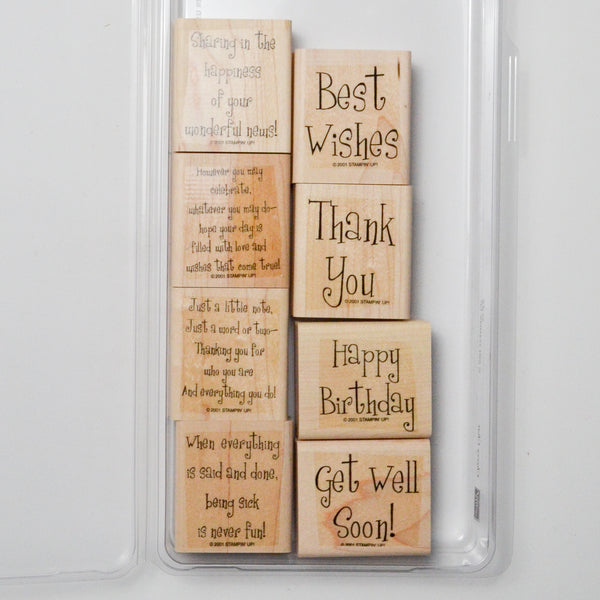 Sharing in the
happiness
of your
wonderful news!
© 2001 STAMPIN' UP!
However you may
celebrate,
whatever you may do—
hope your day is
filled with love and
wishes that come true!
© 2001 STAMPIN' UP!
Just a little note,
Just a word or two—
Thanking you for
who you are
And everything you do!
© 2001 STAMPIN' UP!
When everything
is said and done,
being sick
is never fun!
© 2001 STAMPIN' UP!
Best
Wishes
© 2001 STAMPIN' UP!
Thank
You
© 2001 STAMPIN' UP!
Happy
Birthday
© 2001 STAMPIN' UP!
Get Well
Soon!
© 2001 STAMPIN' UP!